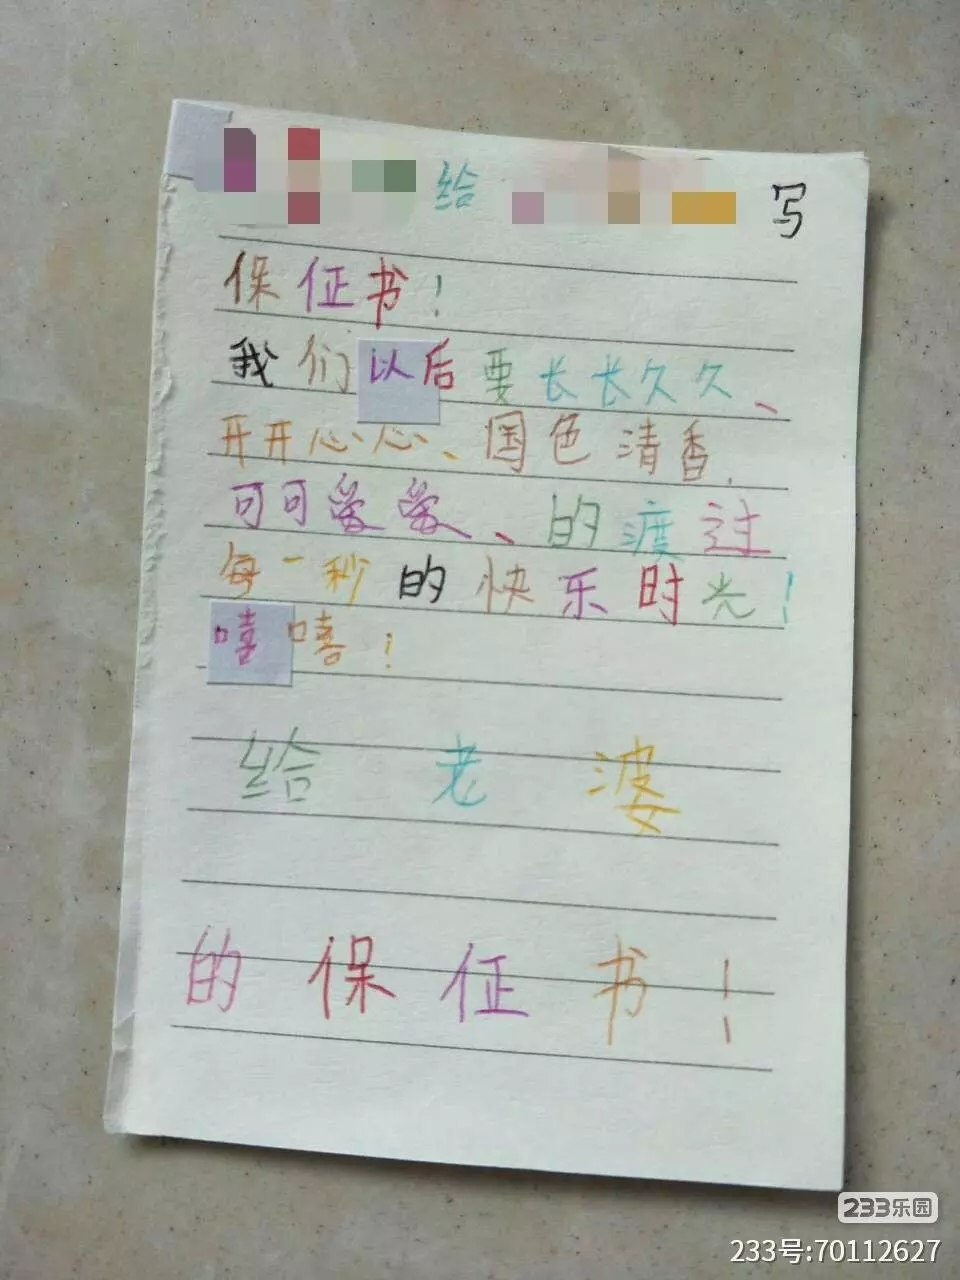 给 写
保证书！
我们以后要长长久久、
开开心心、国色清香.
可可爱爱、的渡过
每一秒的快乐时光！
嘻嘻！
给老婆
的保证书！
233乐园
233号:70112627